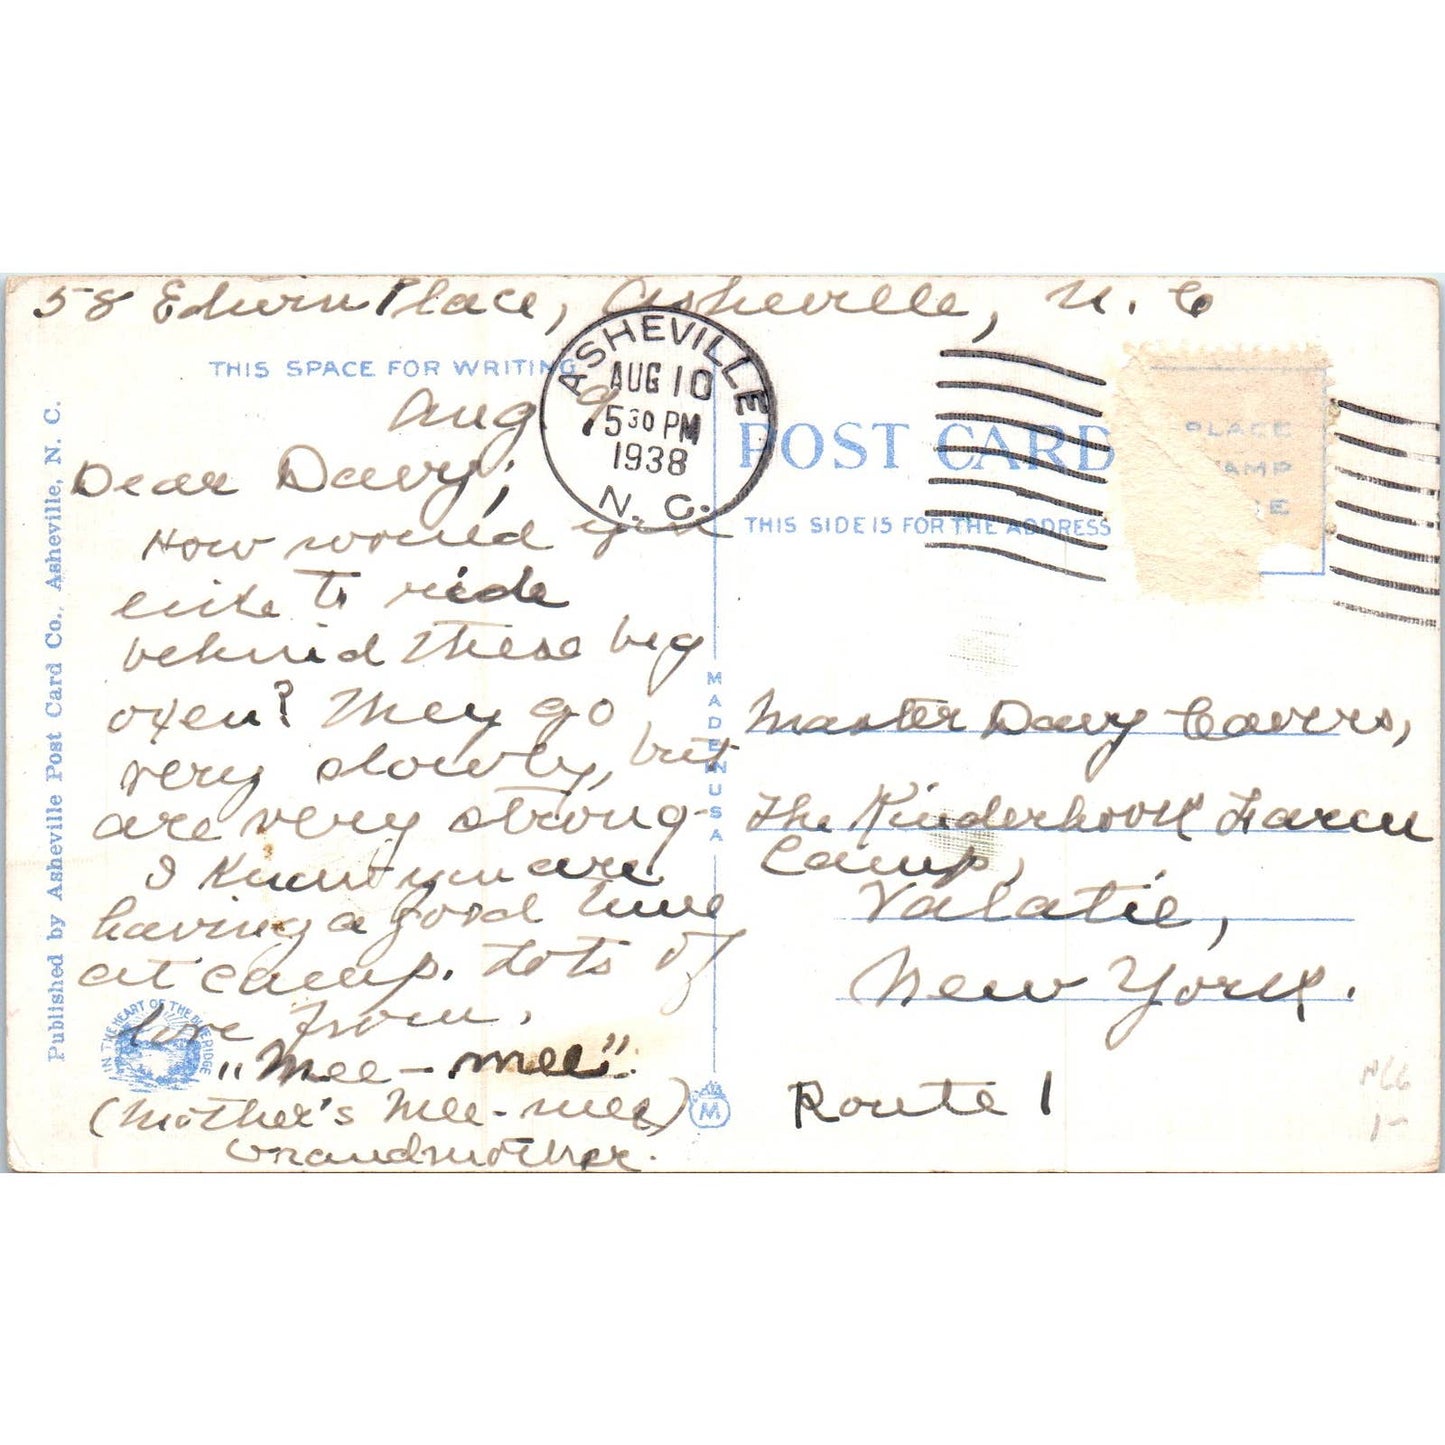 58 Edwin Place, Asheville, N. C
THIS SPACE FOR WRITING
Aug 9
Dear Davy;
How would you
like to ride
behind these big
oxen? They go
very slowly, but
are very strong-
I know you are
having a good time
at camp. Lots of
love from,
"Mee-mee".
(Mother's Mee-mee)
Grandmother.
Published by Asheville Post Card Co., Asheville, N. C.
IN THE HEART OF THE BLUE RIDGE
ASHEVILLE
AUG 10
5 30 PM
1938
N. C.
POST CARD
THIS SIDE IS FOR THE ADDRESS
PLACE
STAMP
MADE IN USA
M
Master Davy
The Kinderhook Farm
Camp,
Valatie,
New York.
Route 1